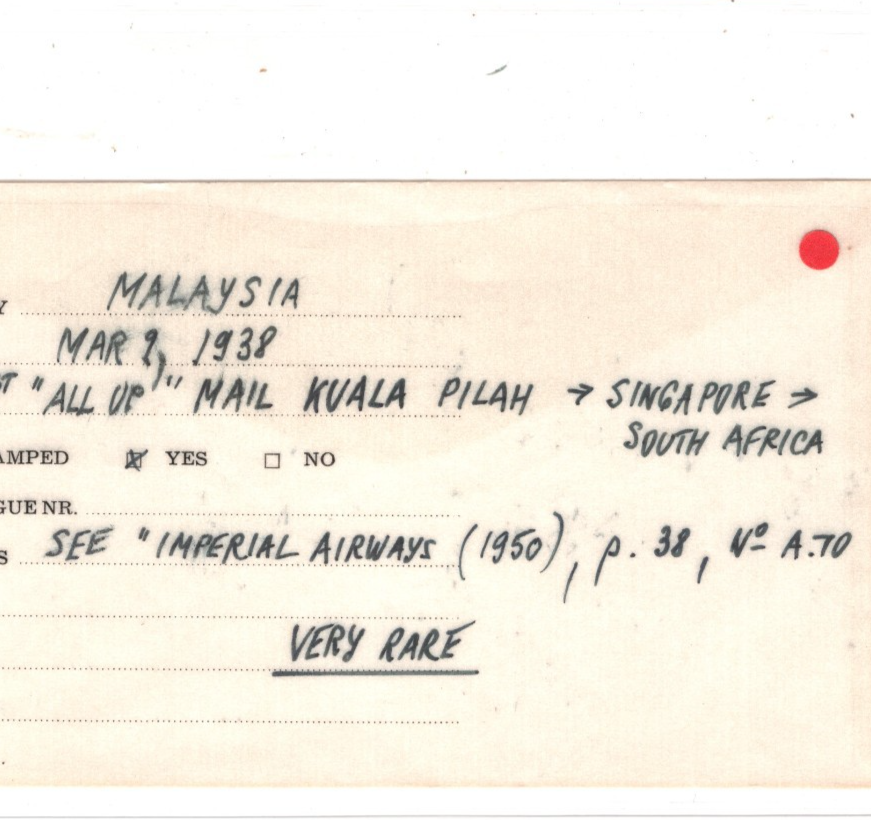 Y MALAYSIA
MAR 2, 1938
ST "ALL UP" MAIL KUALA PILAH → SINGAPORE →
SOUTH AFRICA
AMPED ☒ YES ☐ NO
GUE NR.
S SEE "IMPERIAL AIRWAYS (1950), p. 38, Nº A.70
VERY RARE